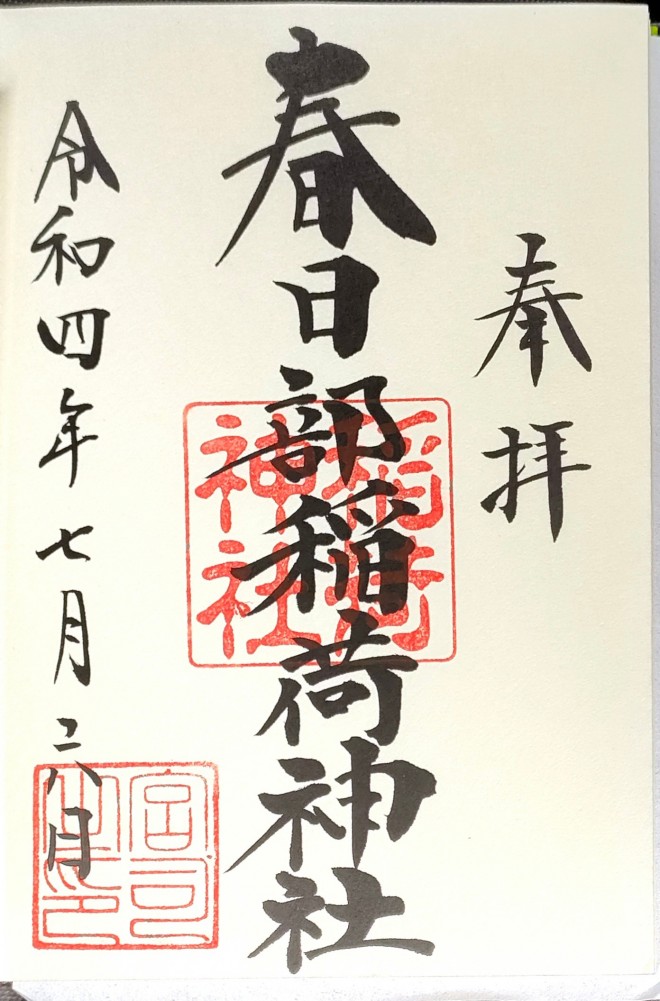 奉拝
春日部稲荷神社
稲荷
神社
令和四年七月二八日
宮司
之印